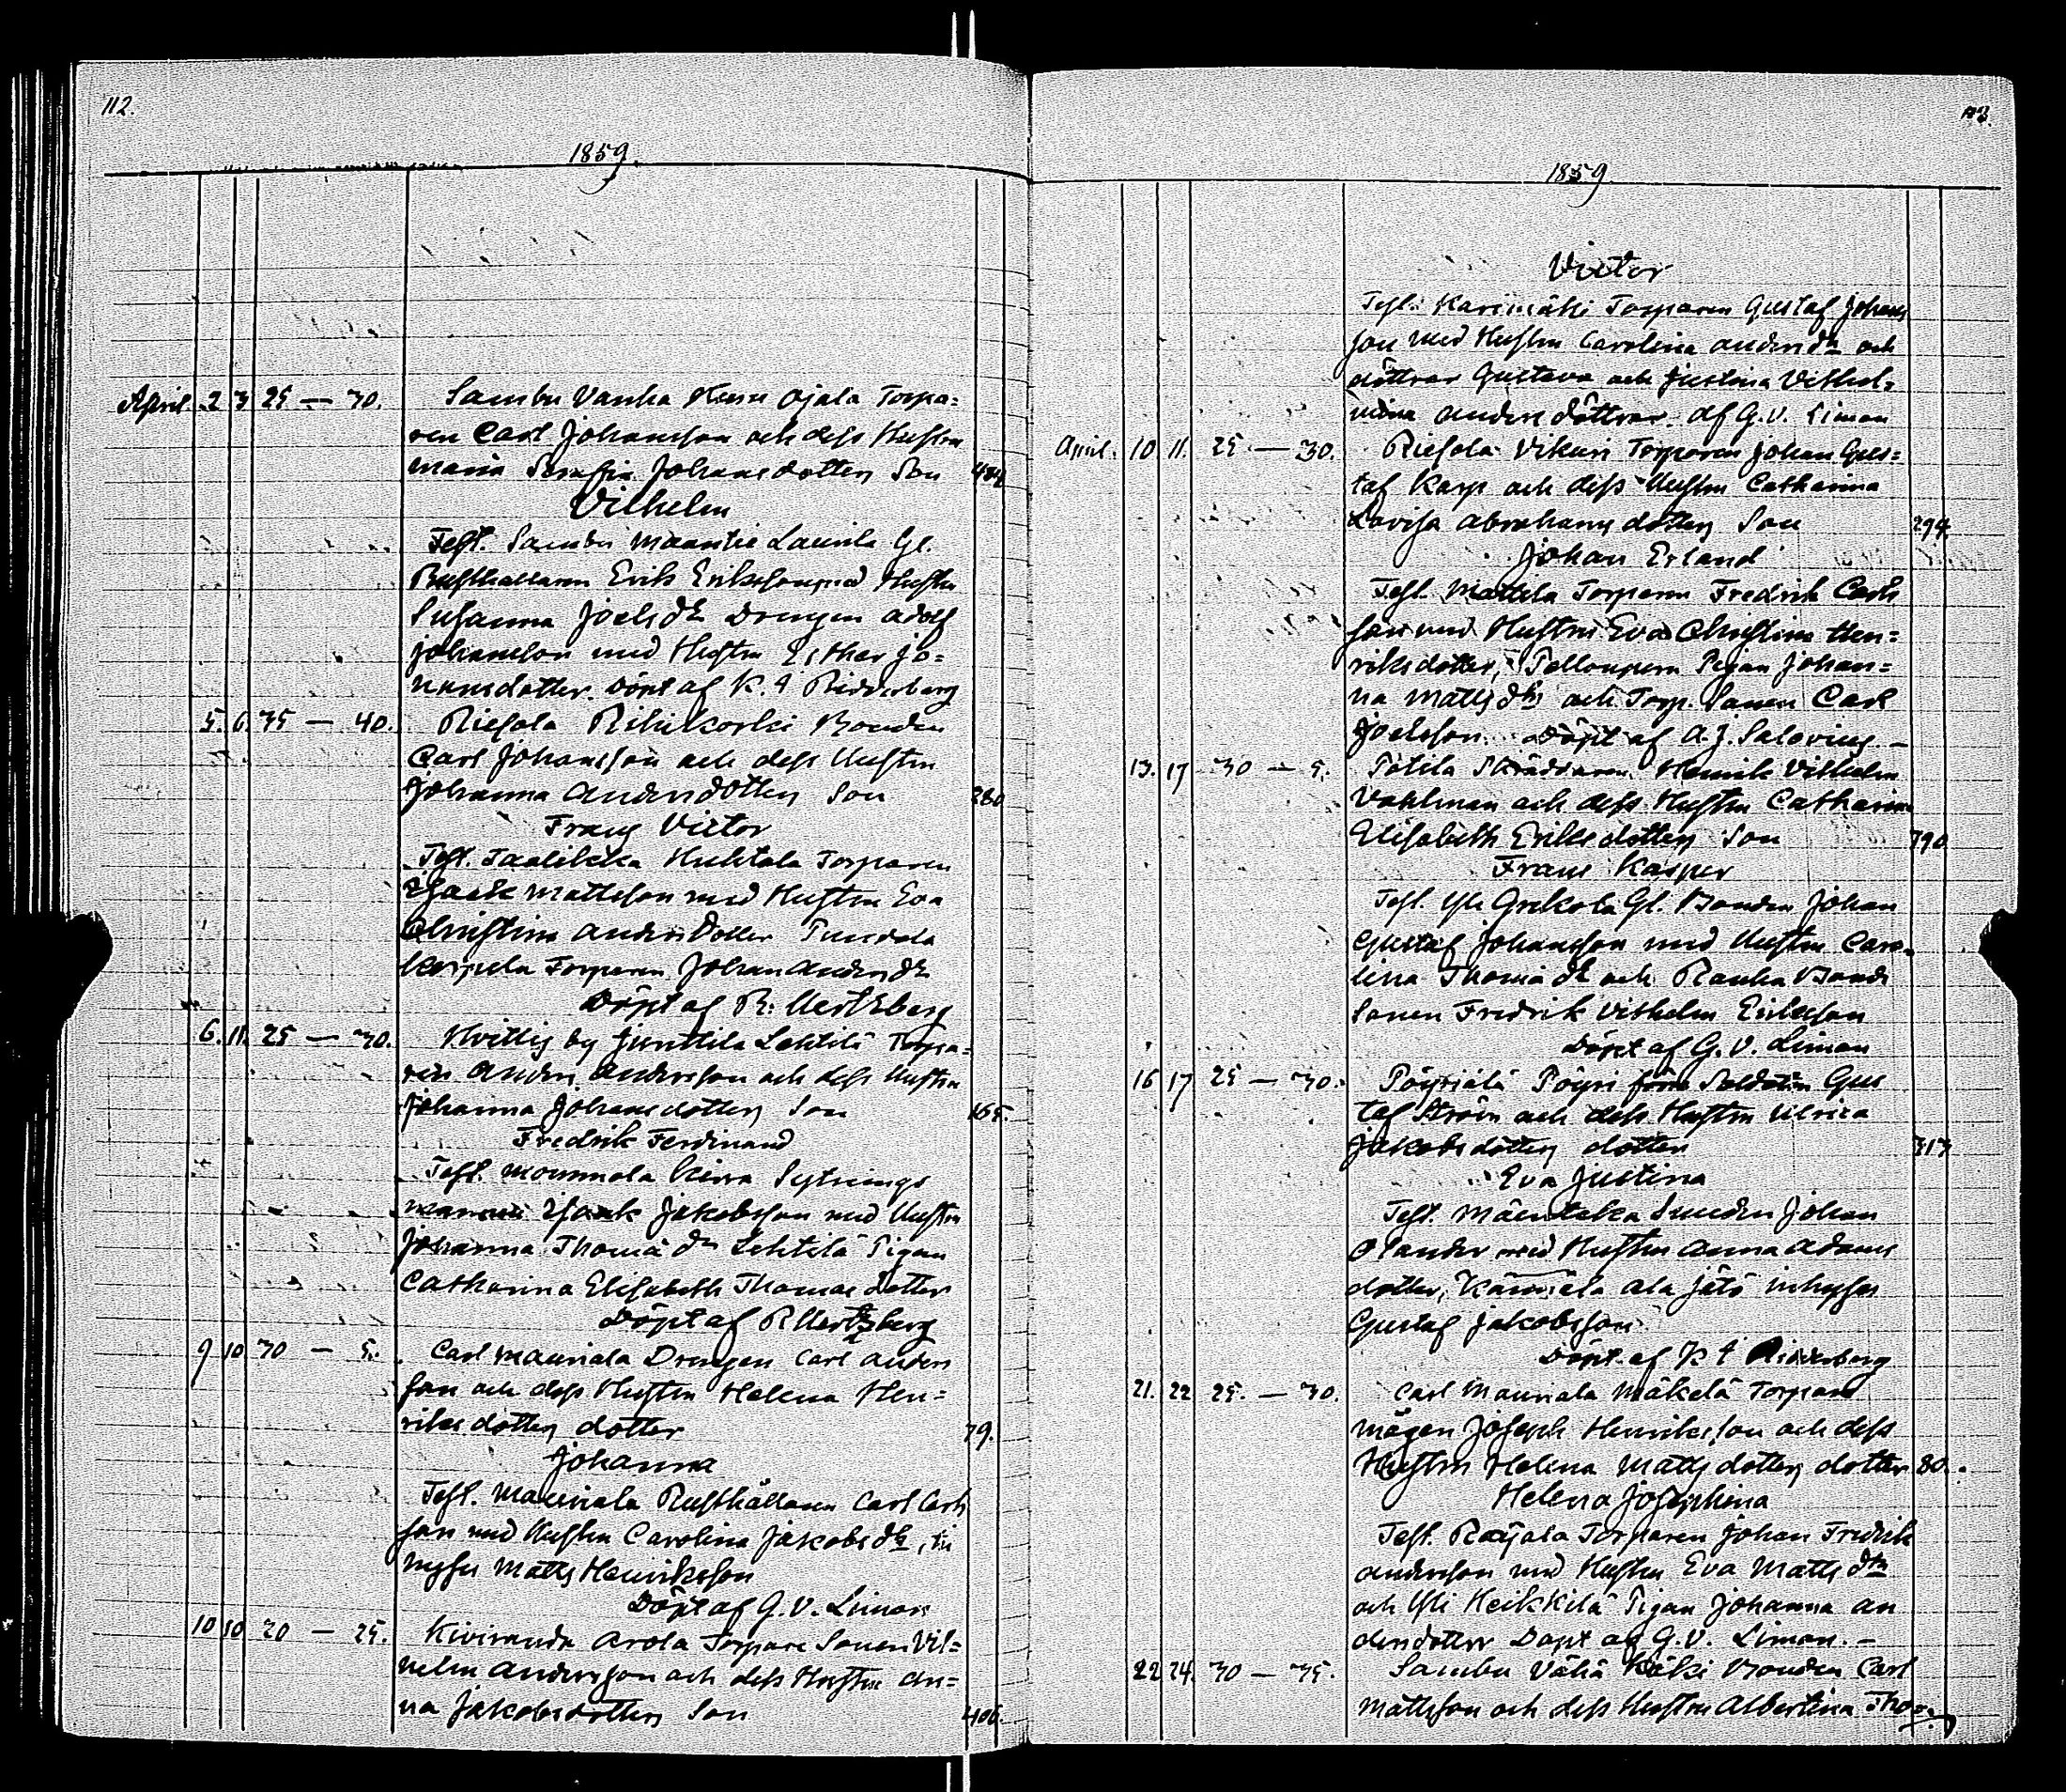 112.
1859.
April. 2 3 25 — 30. Sambu Vanha Ojala Torpa=
ren Carl Johansson och dess Hustru
Maria Serafia Johansdotters Son
Vilhelm
Test. Sambu Laurila Gl.
Rusthållaren Erik Eriksson med Hustru
Susanna Joels dr Drengen Adolf
Johansson med Hustru Esther Jo=
hansdotter. Döpt af K. F Ridderberg
5. 6. 35 — 40. Riesola Rihikoski Bonden
Carl Johansson och dess Hustru
Johanna Andersdotters Son 280
Frans Victor
Test. Huhtala Torparen
Isaak Mattsson med Hustru Eva
Christina Andersdotter
Torparen Johan Anders
Döpt af R. Hertzberg
6. 11. 25 — 30. Hvittis by Junttila Lehtilä Torpa=
ren Anders Andersson och dess Hustru
Johanna Johansdotters Son 165.
Fredrik Ferdinand
Test. Mommola Sytnings
mannen Isaak Jakobsson med Hustru
Johanna Thomä dr Lehtilä Pigan
Catharina Elisabeth Thomasdotter
Döpt af R Hertzberg
9 10 30 — 5. Carl Mauriala Drengen Carl Anders
son och dess Hustru Helena Hen=
riksdotters dotter 79.
Johanna
Test. Mauriala Rusthållaren Carl Carls
son med Hustru Carolina Jakobs dr, in
hyses Matts Henriksson
Döpt af G. V. Liman
10 10 20 — 25. Kiviranda Arola Torpare Sonen Vil=
helm Andersson och dess Hustru An=
na Jakobsdotters Son 406.
113.
1859.
Victor
Test. Karimäki Torparen Gustaf Johans
son med Hustru Carolina Anders dr och
döttrar Gustava och Justina Vilhel=
mina Anders döttrar. Af G. V. Liman
April. 10 11. 25. — 30. Riesola Vikuri Torparen Johan Gus=
taf Karp och dess Hustru Catharina
Lovisa Abrahams dotters Son 294
Johan Erland
Test. Mattila Torparen Fredrik Carls
son med Hustru Eva Christina Hen=
riksdotter, Pigan Johan=
na Matts dr och Torp. Sonen Carl
Joelsson. Döpt af A. J. Salovius. —
13. 17 30 — 5. Pätilä Skräddaren Henrik Vilhelm
Vahlman och dess Hustru Catharina
Elisabeth Eriksdotters Son 190
Frans Kasper
Test. Yli Grekola Gl. Bonden Johan
Gustaf Johansson med Hustru Caro=
lina Thomä dr och Ranka Bonde
Sonen Fredrik Vilhelm Eriksson
Döpt af G. V. Liman
16 17 25 — 30. Pöyriälä Pöyri förre Soldaten Gus
taf Ström och dess Hustru Ulrica
Jakobsdotters dotter 313
Eva Justina
Test. Mäentaka Sunden Johan
Olander med Hustru Anna Adams
dotter, Ala Jätö inhyses
Gustaf Jakobsson
Döpt af K F Ridderberg
21. 22 25. — 30. Carl Mauriala Mäkelä Torpare
mågen Joseph Henriksson och dess
Hustru Helena Matts dotters dotter 80.
Helena Josephina
Test. Raijala Torparen Johan Fredrik
Andersson med Hustru Eva Matts dtr
och Yli Heikkilä Pigan Johanna An
dersdotter Döpt af G. V. Liman. —
22 24. 30 — 35. Sambu Vähä Käki Bonden Carl
Mattsson och dess Hustru Albertina Tho=